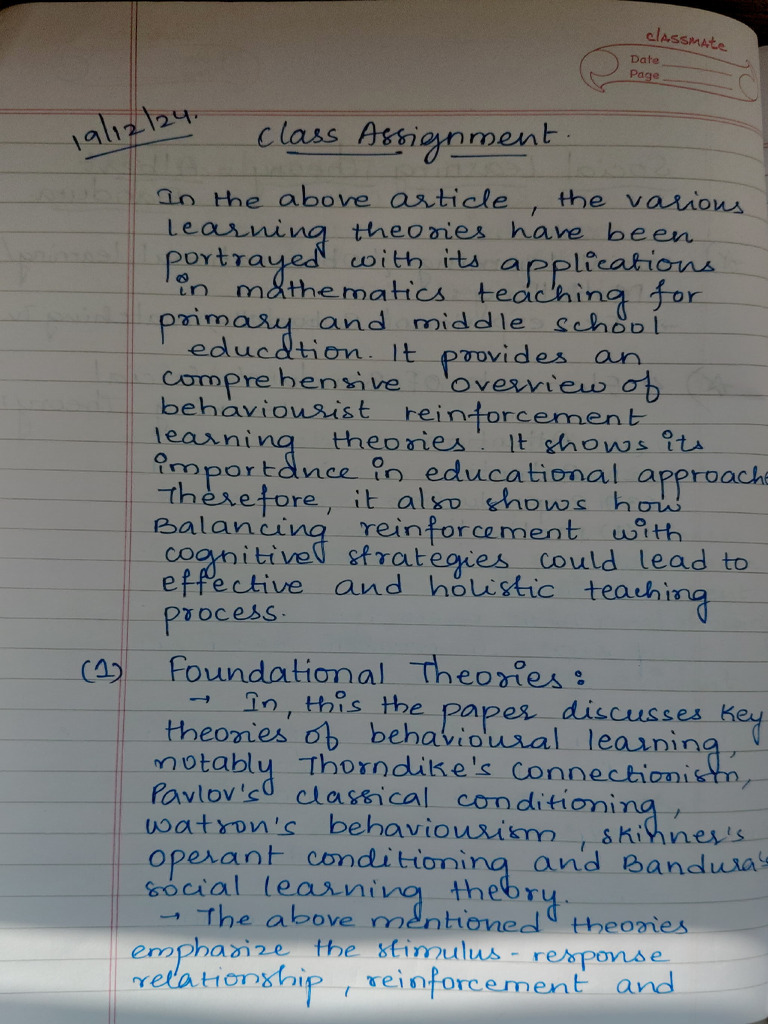 classmate
Date
Page
19/12/24.
Class Assignment.
In the above article, the various
learning theories have been
portrayed with its applications
in mathematics teaching for
primary and middle school
education. It provides an
comprehensive overview of
behaviourist reinforcement
learning theories. It shows its
importance in educational approach
Therefore, it also shows how
Balancing reinforcement with
cognitive strategies could lead to
effective and holistic teaching
process.
(1) Foundational Theories:
→ In, this the paper discusses key
theories of behavioural learning,
notably Thorndike's connectionism,
Pavlov's classical conditioning,
Watson's behaviourism, Skinner's
operant conditioning and Bandura's
social learning theory.
→ The above mentioned theories
emphasize the stimulus-response
relationship, reinforcement and